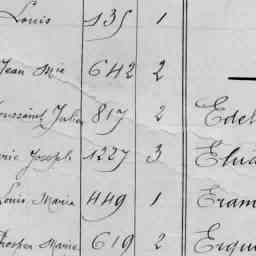 Louis 135 1
Jean Mie 642 2
Toussaint Julien 817 2 Edel
Marie Joseph 1227 3 Elid
Louis Maria 449 1 Eram
Prosper Marie 619 2 Ergu